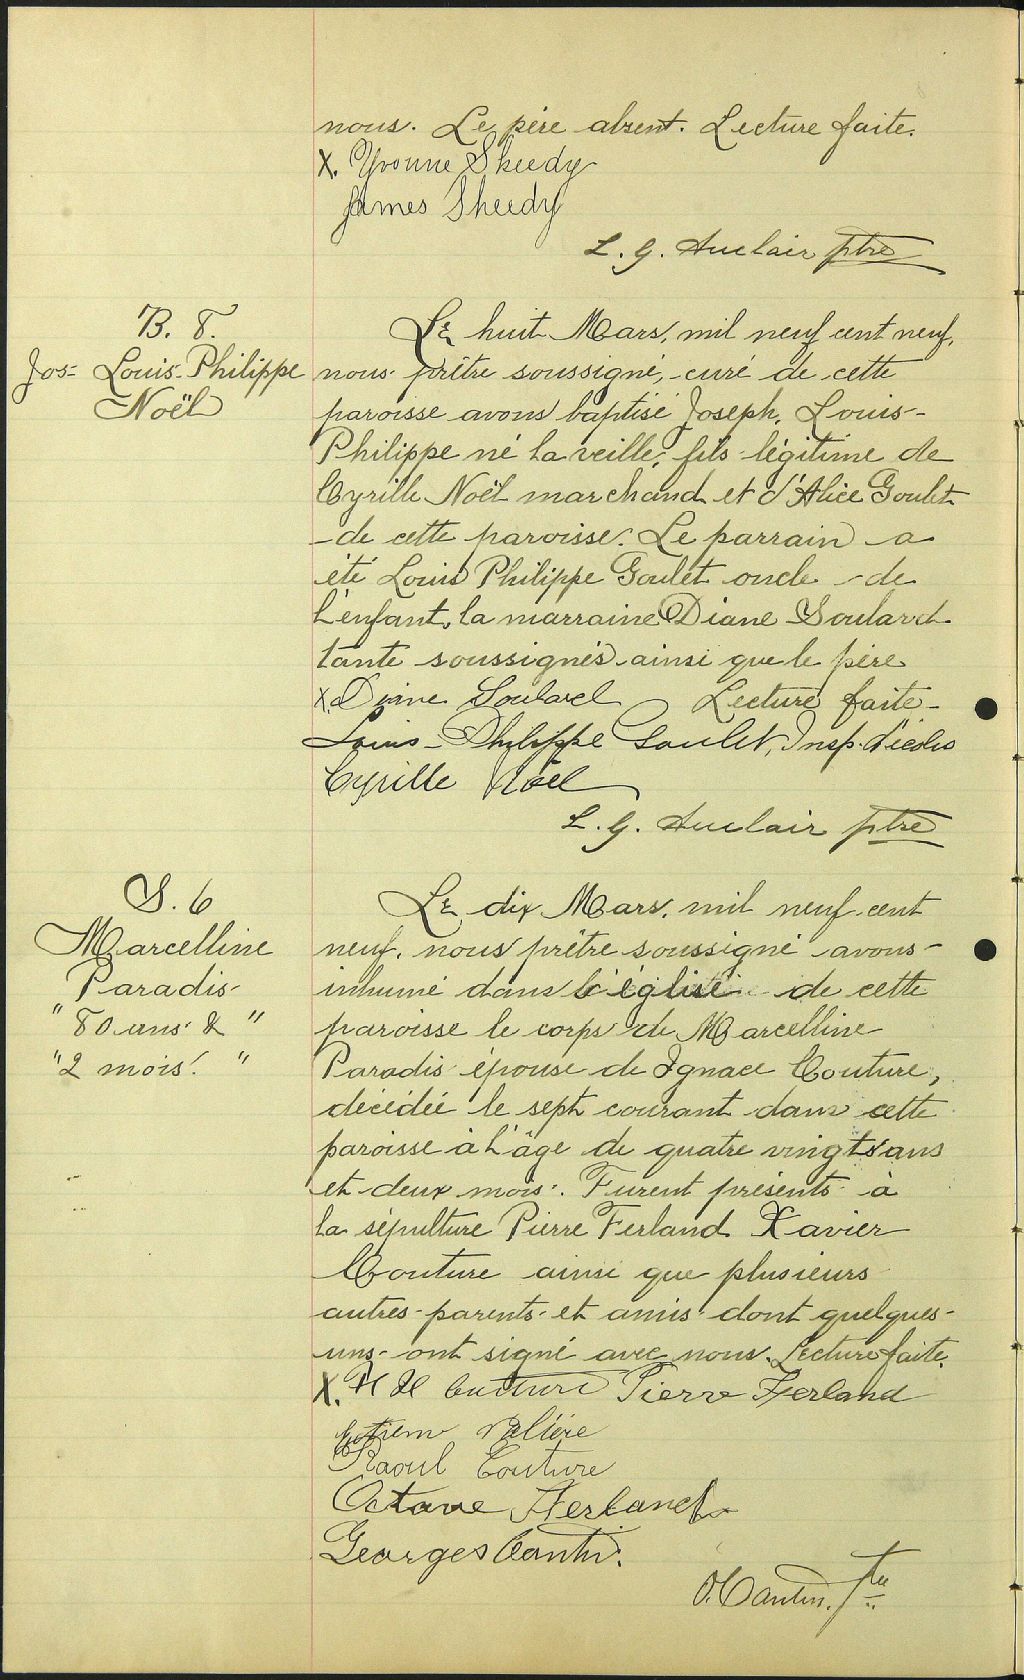 nous. Le père absent. Lecture faite.
X. Yvonne Sheedy
James Sheedy
L. G. Auclair ptre
B. 8.
Jos- Louis-Philippe
Noël
Le huit Mars, mil neuf cent neuf,
nous prêtre soussigné, curé de cette
paroisse avons baptisé Joseph, Louis-
Philippe né la veille, fils légitime de
Cyrille Noël marchand et d'Alice Goulet
de cette paroisse. Le parrain a
été Louis Philippe Goulet oncle de
l'enfant, la marraine Diane Soulard
tante soussignés ainsi que le père
X. Diane Soulard Lecture faite-
Louis-Philippe Goulet, Insp. d'écoles
Cyrille Noël
L. G. Auclair ptre
S. 6
Marcelline
Paradis
" 80 ans & "
" 2 mois. "
Le dix Mars, mil neuf cent
neuf, nous prêtre soussigné avons
inhumé dans l'église de cette
paroisse le corps de Marcelline
Paradis épouse de Ignace Couture,
décédée le sept courant dans cette
paroisse à l'âge de quatre vingts ans
et deux mois. Furent présents à
la sépulture Pierre Ferland Xavier
Couture ainsi que plusieurs
autres parents et amis dont quelques-
uns ont signé avec nous. Lecture faite.
X. Couture Pierre Ferland
Raoul Couture
Octave Ferland
Georges Cantin.
O. Cantin. Ptre